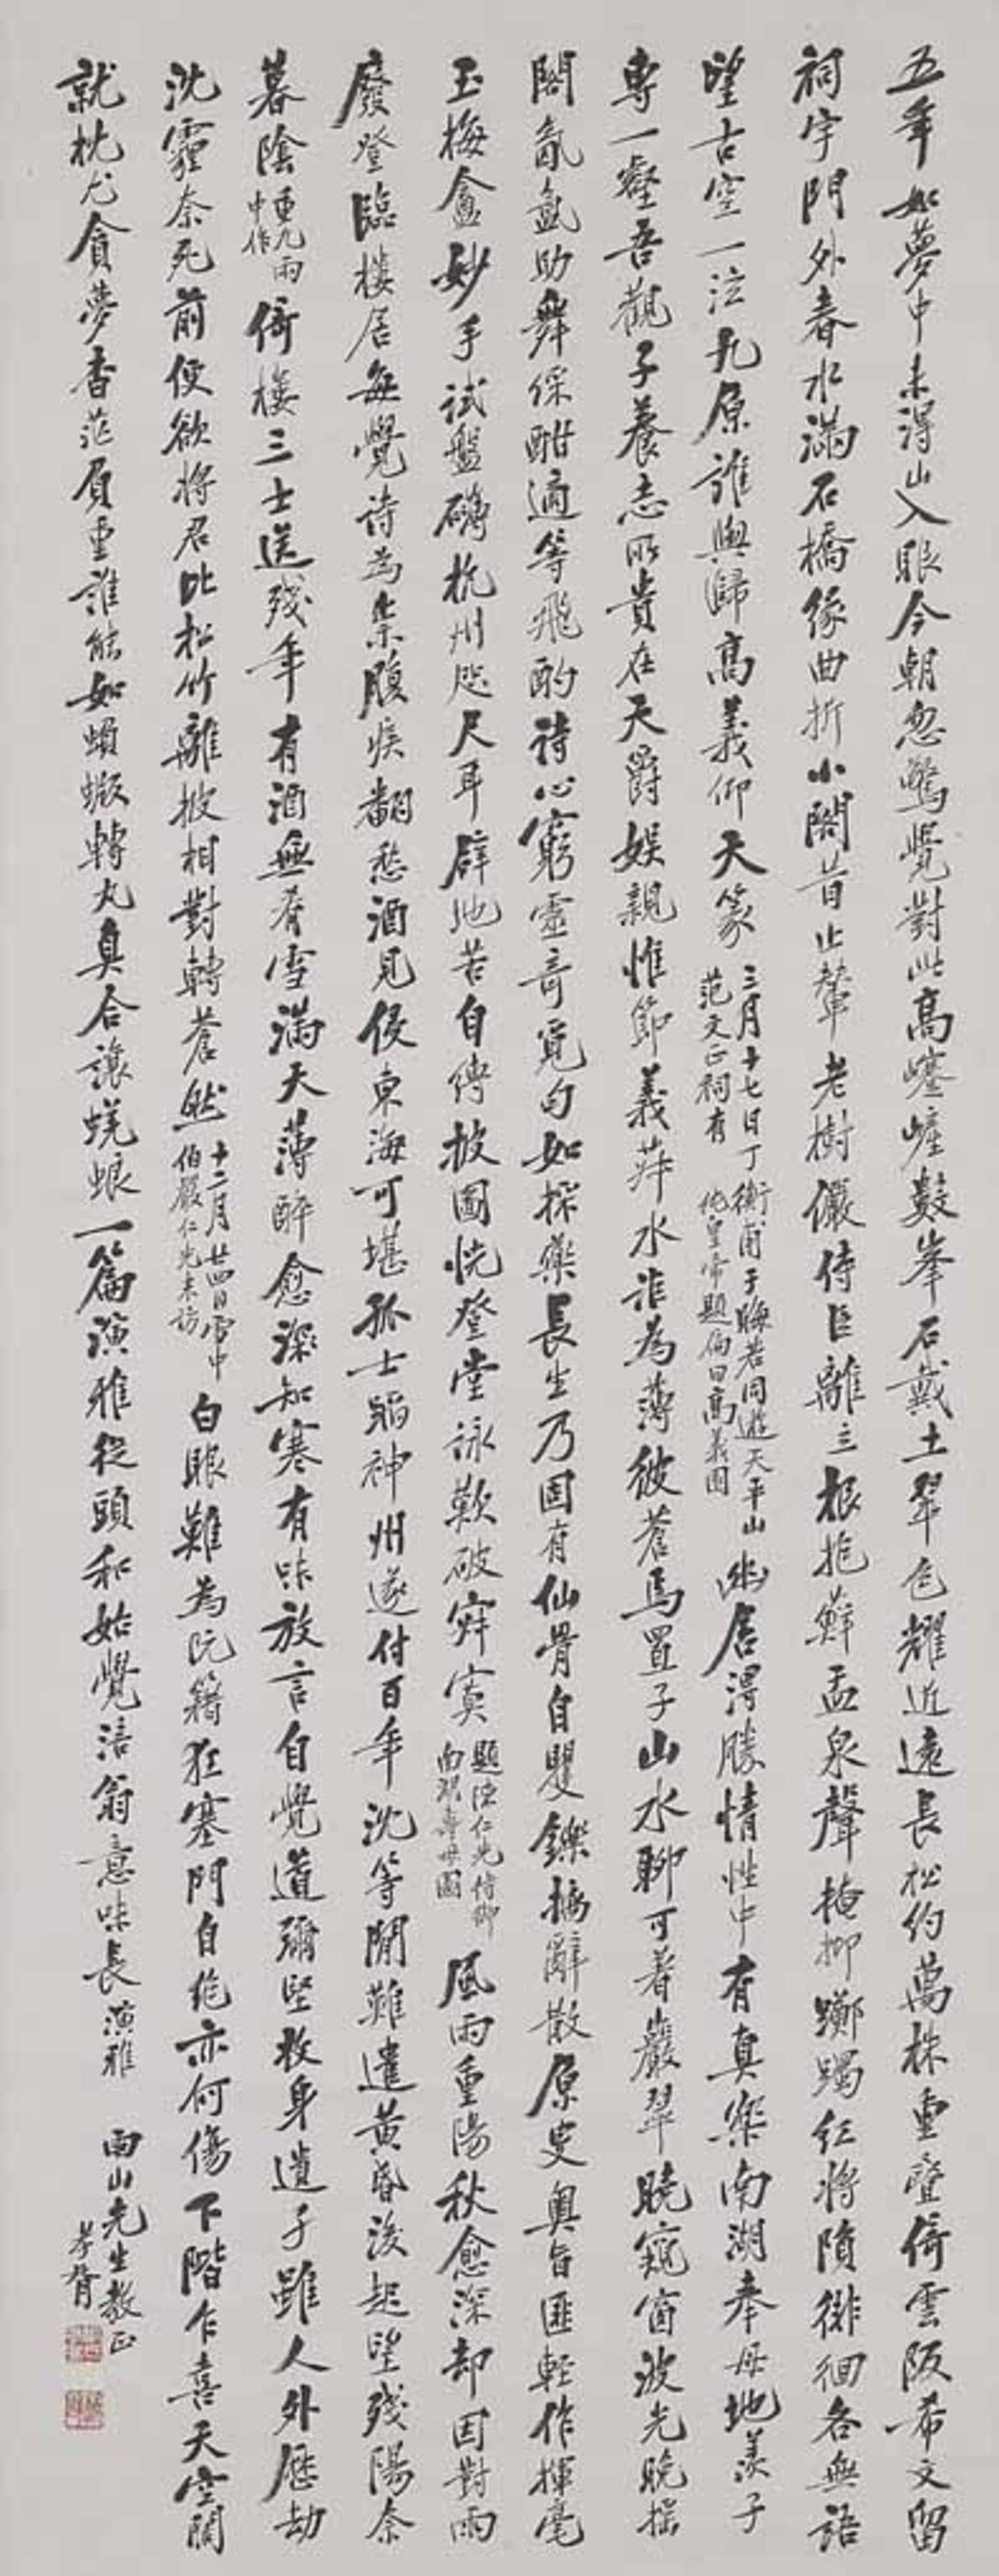 五年如夢中未得山入眼今朝忽驚覺對此高蹇嵼數峯石戴土翠色耀近遠長松約萬株重疊倚雲阪希文留
祠宇門外春水滿石橋緣曲折小閣昔止輦老樹儼侍臣離立根抱蘚盂泉聲掩抑躑躅紅將隕徘徊各無語
望古空一泫九原誰與歸高義仰天篆三月十七日丁衡甫于晦若同遊天平山范文正祠有純皇帝題榜曰高義園幽居得勝情性中有真樂南湖奉母地羨子
專一壑吾觀子養志所貴在天爵娛親惟節義菽水詎為薄彼蒼焉置子山水聊可着巖翠曉窺窗波光晚搖
閣氤氳助舞綵酣適等飛酌詩心窮靈奇覓句如採藥長生乃固有仙骨自矍鑠摛辭散原叟奧旨匪輕作揮毫
玉梅盦妙手試盤礴杭州咫尺耳辟地苦自縛披圖恍登堂詠歎破寂寞題陳仁先侍御南湖壽母圖風雨重陽秋愈深却因對雨
廢登臨樓居每覺詩為祟腹疾翻愁酒見侵東海可堪孤士蹈神州遂付百年沈等閒難遣黃昏後起望殘陽奈
暮陰重九雨中作倚樓三士送殘年有酒無肴雪滿天薄醉愈深知寒有味放言自覺道彌堅收身遺子雖人外歷劫
沈霾奈死前便欲將君比松竹離披相對轉蒼然十二月廿四日雪中伯嚴仁先來訪白眼難為阮籍狂塞門自絕亦何傷下階乍喜天空闊
就枕尤貪夢香茫負重誰能如蝜蝂轉丸真合讓蜣蜋一篇演雅從頭和始覺涪翁意味長演雅
南山先生教正
孝胥